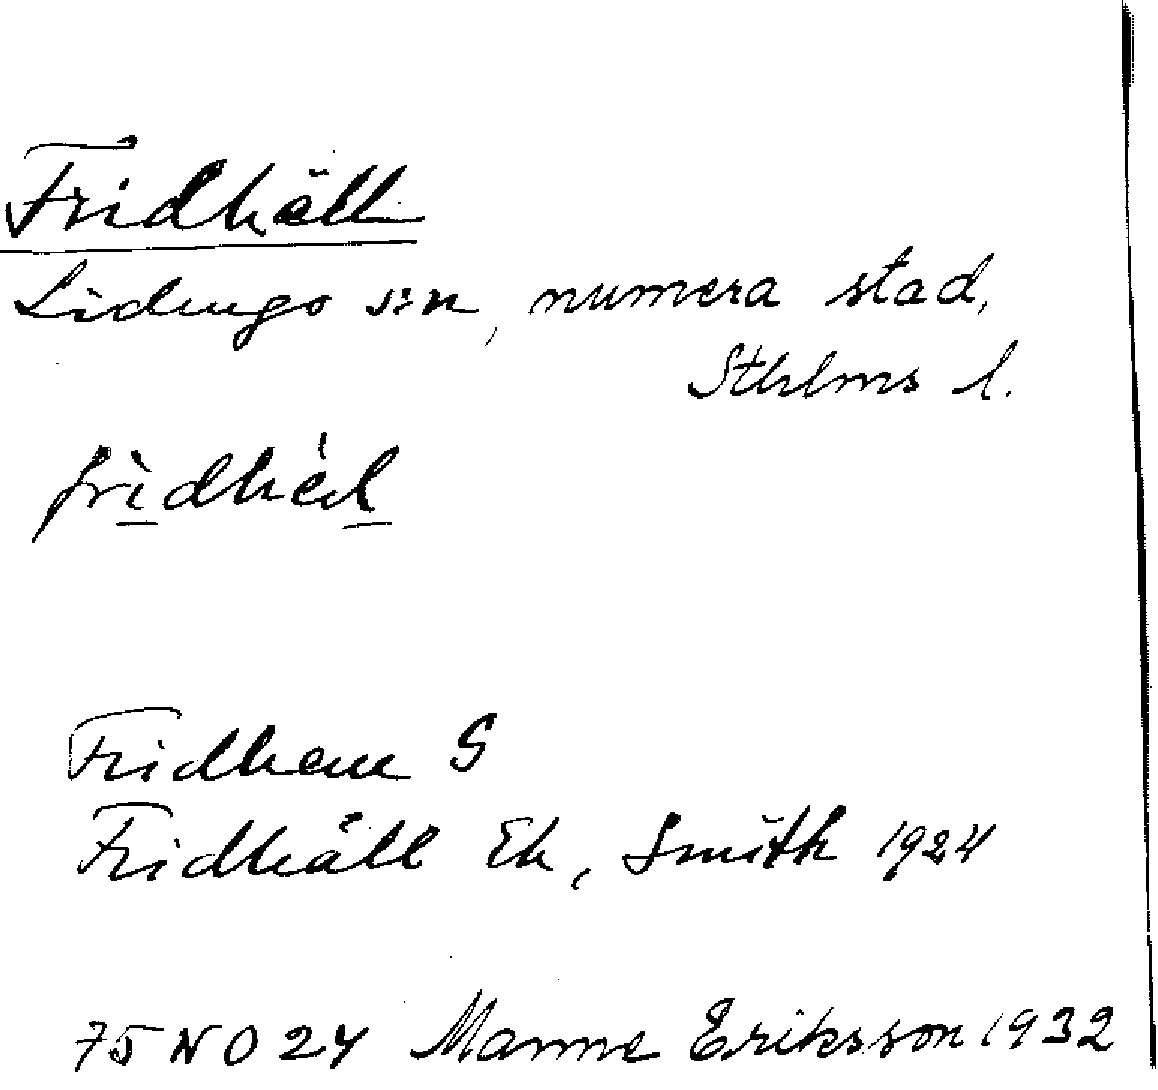 Fridhäll
Lidingö s:n, numera stad,
Sthlms l.
Fridhem S
Fridhäll Ek, Smith 1924
75 NO 24 Manne Eriksson 1932